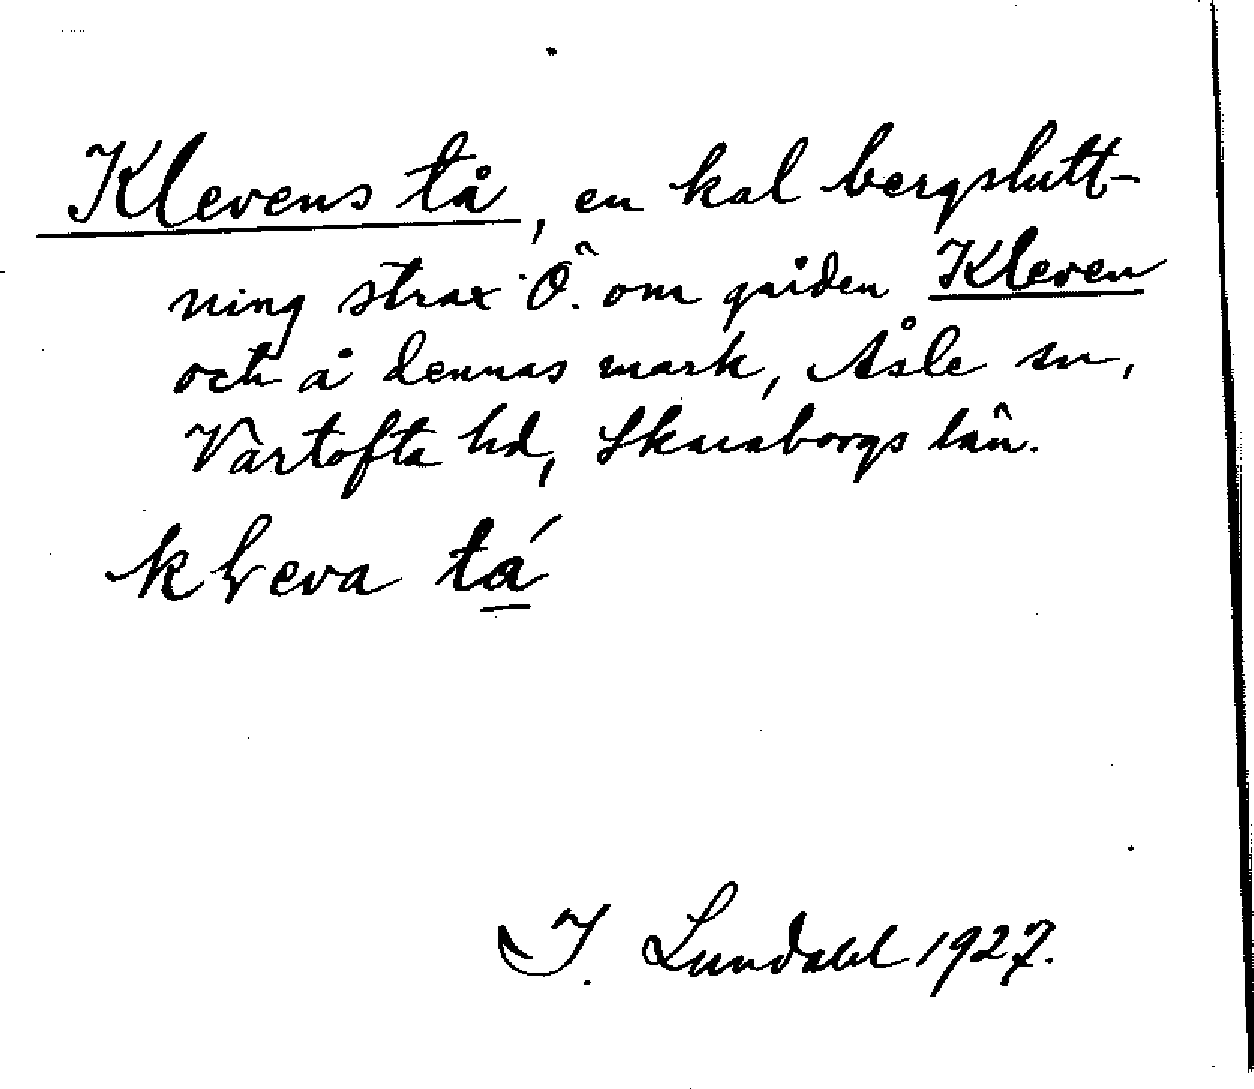 Klevens tå, en kal bergslutt-
ning strax Ö. om gården Kleven
och å dennas mark, Åsle sn,
Vartofta hd, Skaraborgs län.
kleva tá
I. Lundahl 1927.